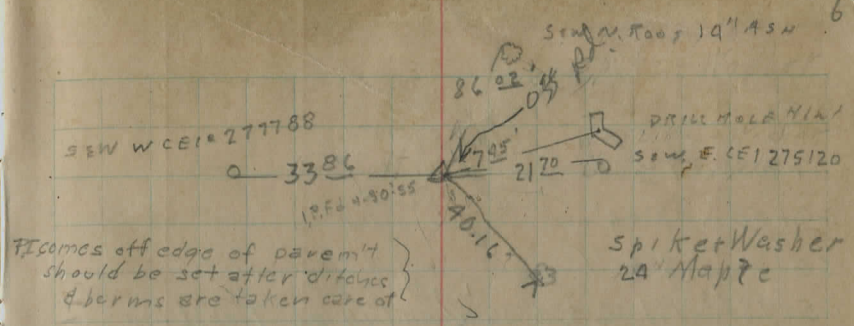 6
S&W N. Root 19" ASH
86 02'
DRILL HOLE
S&W W CEI # 277788
33 86
745'
21 70
S&W E. CEI 275120
I.P. Fd 4-30-55
40.16
PI comes off edge of pavem't
should be set after ditches
& berms are taken care of
Spike & Washer
24 Maple